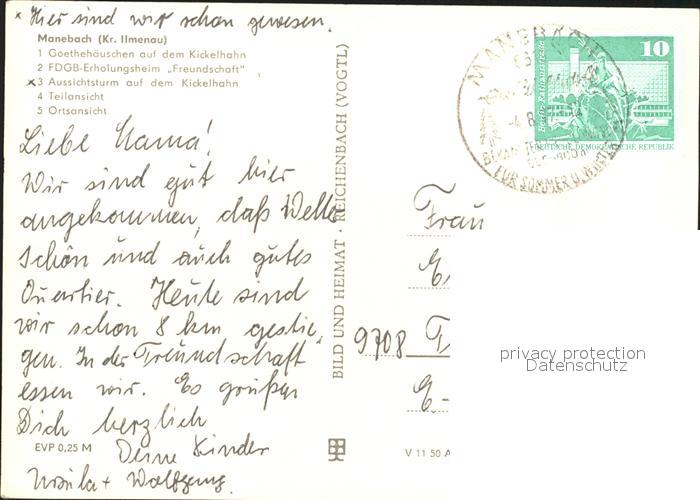 x Hier sind wir schon gewesen.
Manebach (Kr. Ilmenau)
1 Goethehäuschen auf dem Kickelhahn
2 FDGB-Erholungsheim „Freundschaft"
x 3 Aussichtsturm auf dem Kickelhahn
4 Teilansicht
5 Ortsansicht
Liebe Mama!
Wir sind gut hier
angekommen, daß Wetter
schön und auch gutes
Quartier. Heute sind
wir schon 8 km gestie-
gen. In der Freundschaft
essen wir. Es grüßen
Dich herzlich
Deine Kinder
Ursula + Wolfgang.
EVP 0,25 M
BILD UND HEIMAT · REICHENBACH (VOGTL)
V 11 50 A
MANEBACH
FÜR SOMMER U. WINTER
10
Berlin, Rathausstraße
DEUTSCHE DEMOKRATISCHE REPUBLIK
Frau
E
9708 T
E-
privacy protection
Datenschutz